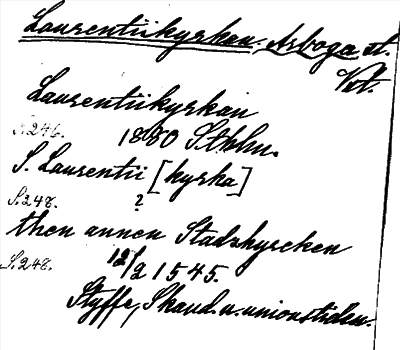 Laurentiikyrkan. Arboga st.
Vst.
Laurentiikyrkan
S. 246. 1880 Sthlm.
S. Laurentii [kyrka]
S. 248. ?
then annen Stadzkyrcken
S. 248. 12/2 1545.
Styffe, Skand. u. unionstiden.